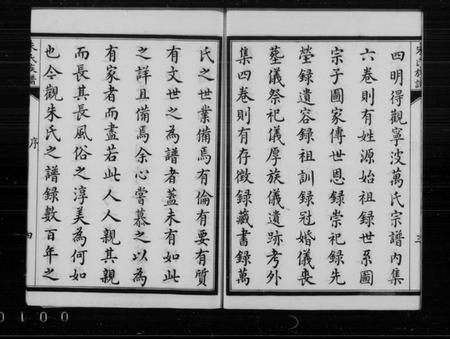 四明得觀寧波萬氏宗譜內集
六卷則有姓源始祖錄世系圖
宗子圖家傳世恩錄崇祀錄先
塋錄遺容錄祖訓錄冠婚儀喪
葬儀祭祀儀厚族儀遺跡考外
集四卷則有存徵錄藏書錄萬
氏之世業備焉有倫有要有質
有文世之為譜者蓋未有如此
之詳且備焉余心嘗慕之以為
有家者而盡若此人人親其親
而長其長風俗之淳美為何如
也今觀朱氏之譜錄數百年之
序
四
0100